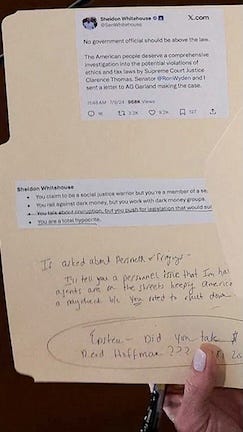 Sheldon Whitehouse
@SenWhitehouse
X.com
No government official should be above the law.
The American people deserve a comprehensive
investigation into the potential violations of
ethics and tax laws by Supreme Court Justice
Clarence Thomas. Senator @RonWyden and I
sent a letter to AG Garland making the case.
11:45 AM · 7/9/24 · 968K Views
Sheldon Whitehouse
• You claim to be a social justice warrior but you're a member of a
• You rail against dark money, but you work with dark money groups.
• You talk about corruption, but you push for legislation that would
• You are a total hypocrite.
If asked about Personnel + Firings-
I'll tell you a personnel issue that I'm
agents are on the streets keeping America
a paycheck b/c you voted to shut down
Epstein - Did you take $
Reid Hoffman ???